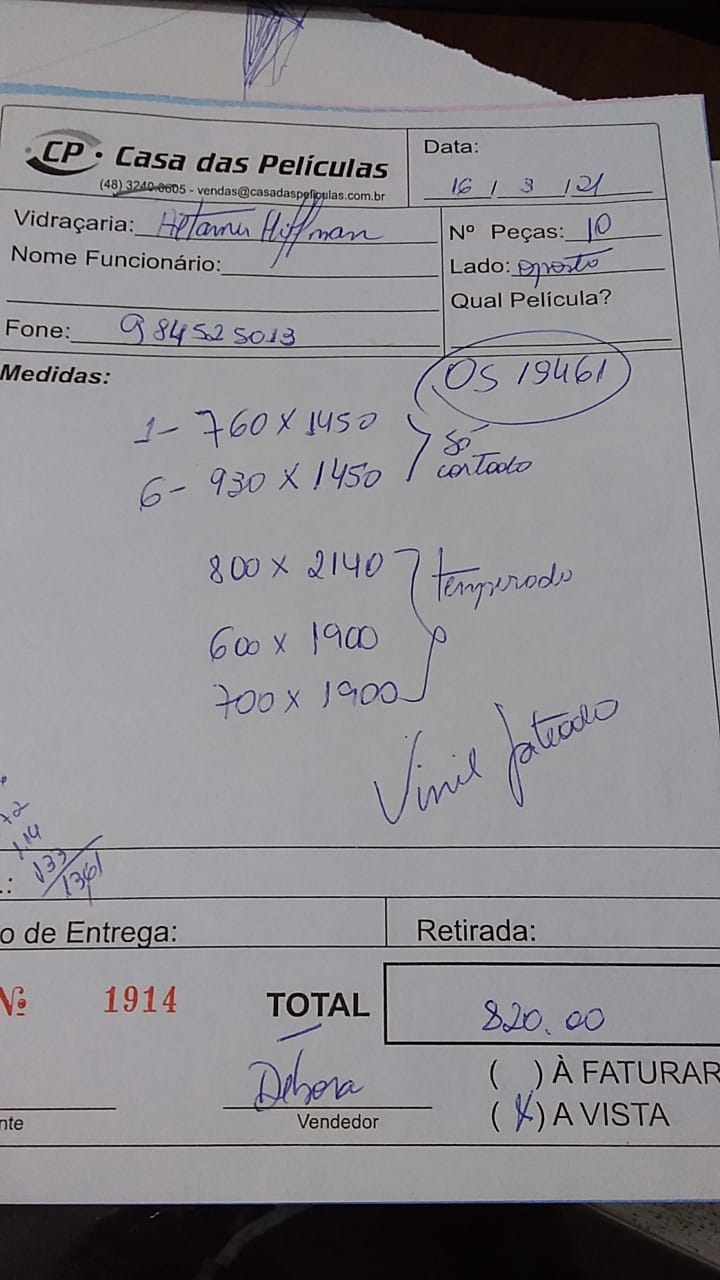 CP · Casa das Películas
(48) 3240.0605 - vendas@casadaspeliculas.com.br
Data: 16 / 3 / 21
Vidraçaria: Hoffman
Nome Funcionário:
Fone: 984525013
Nº Peças: 10
Lado: oposto
Qual Película?
OS 19461
Medidas:
1- 760 x 1450
6- 930 x 1450
só
cortado
800 x 2140
600 x 1900
700 x 1900
temperado
Vinil Jateado
114
133
1361
o de Entrega:
Retirada:
Nº 1914
TOTAL 820.00
Débora
Vendedor
nte
( ) À FATURAR
(X) A VISTA